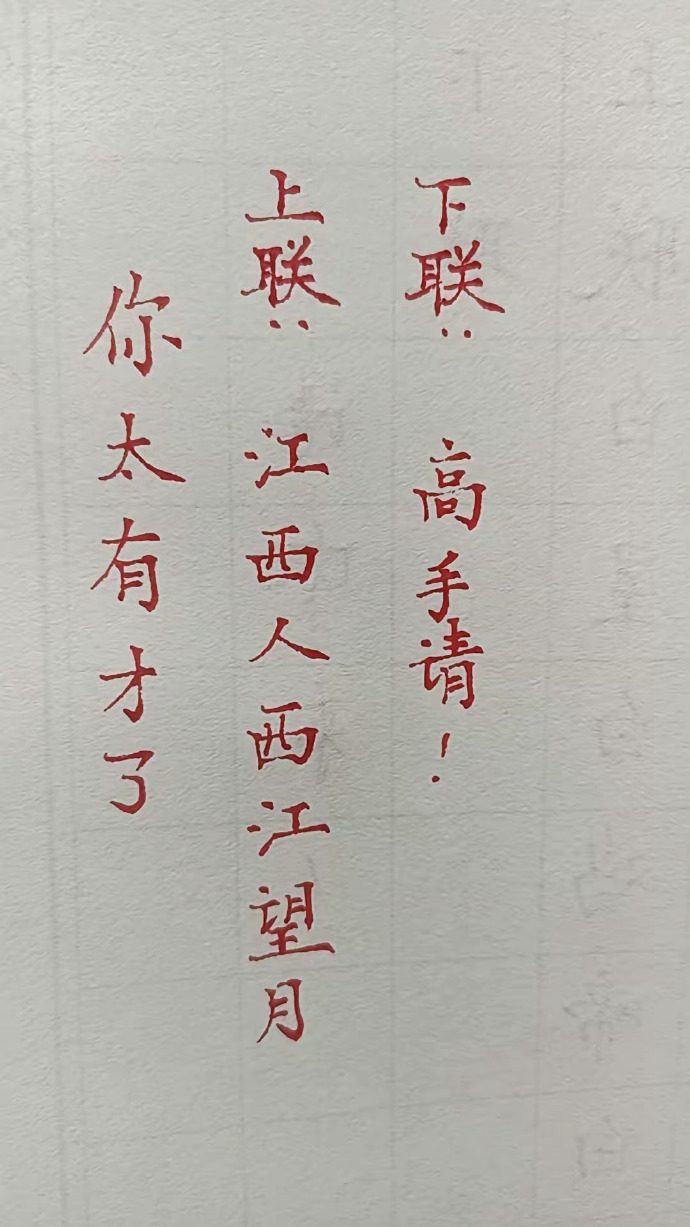 下联： 高手请！
上联： 江西人西江望月
你太有才了